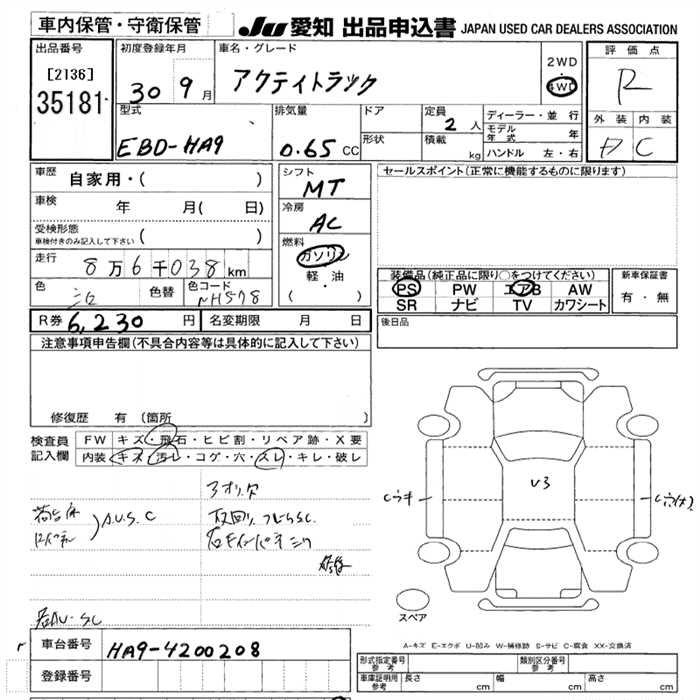 車内保管・守衛保管
JU 愛知 出品申込書 JAPAN USED CAR DEALERS ASSOCIATION
出品番号 初度登録年月 車名・グレード 評価点
[2136] 35181 30 9 月 アクティトラック 2WD ・ 4WD R
型式 排気量 ドア 定員 ディーラー・並行 外装 内装
形状 2 人 モデル年式 年
EBD-HA9 0.65 CC 積載 kg ハンドル 左・右 D C
車歴 自家用・( ) シフト MT セールスポイント(正常に機能するものに限ります)
車検 年 月( 日) 冷房 AC
受検形態 車検付きのみ記入して下さい ( )
燃料 ガソリン
走行 8万6千038km 軽・油
装備品(純正品に限り○をつけてください) 新車保証書
色 シロ 色替 色コード NH578 (・)
PS PW エアB AW 有・無
SR ナビ TV カワシート
R券 6,230 円 名変期限 月 日 後日品
注意事項申告欄(不具合内容等は具体的に記入して下さい)
修復歴 有 (箇所
検査員記入欄 FW キズ・飛石・ヒビ割・リペア跡・X要
内装 キズ・汚レ・コゲ・穴・スレ・キレ・破レ
アオリ欠
荷台床 A.U.S.C
U3
Cウキ
スペア
A-キズ E-エクボ U-凹み W-補修跡 S-サビ C-腐食 XX-交換済
車台番号 HA9-4200208
登録番号
形式指定番号 参考 類別区分番号 参考
車庫証明用 参考 長さ cm 幅 cm 高さ cm